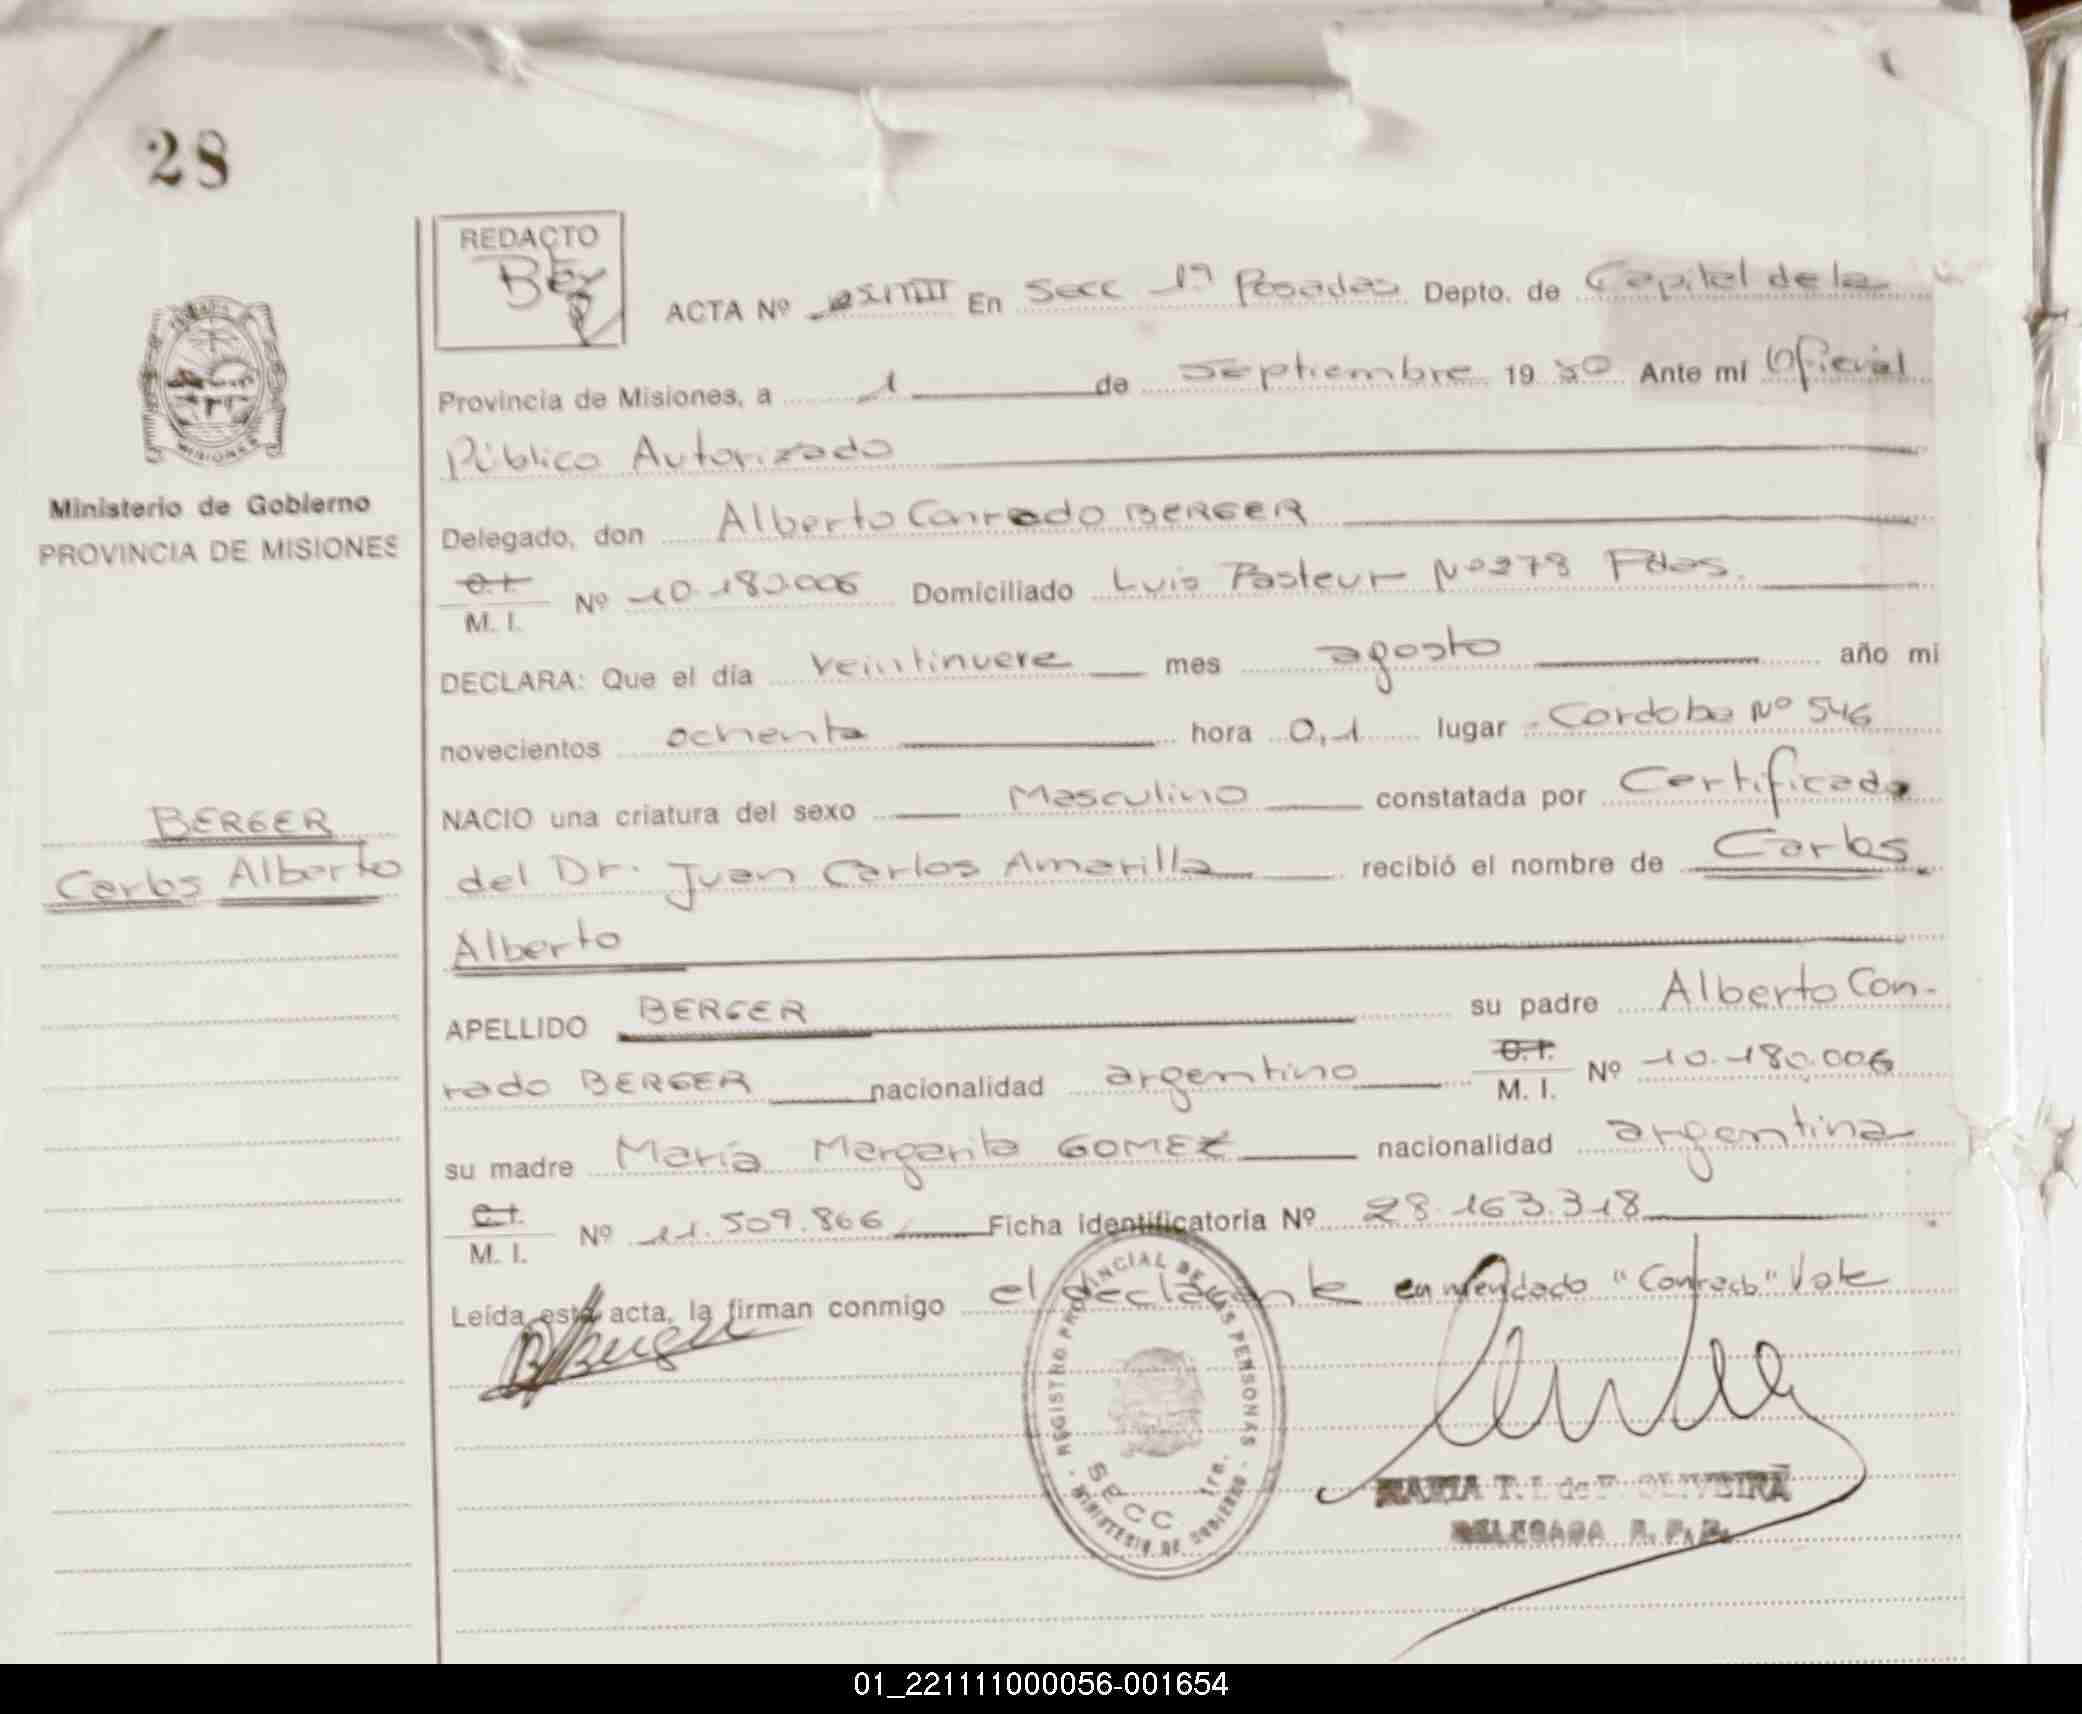 28
REDACTO
ACTA Nº En Secc 1ª Posadas Depto. de Capital de la
Provincia de Misiones, a 1 de Septiembre 19 80 Ante mi Oficial
Público Autorizado
Delegado, don Alberto Conrado BERGER
C.I. M. I. Nº 10.180.006 Domiciliado Luis Pasteur Nº 278 Pdas.
DECLARA: Que el día veintinueve mes agosto año mi
novecientos ochenta hora 0,1 lugar Cordoba Nº 546
NACIO una criatura del sexo Masculino constatada por Certificado
del Dr. Juan Carlos Amarilla recibió el nombre de Carlos
Alberto
APELLIDO BERGER su padre Alberto Con-
rado BERGER nacionalidad argentino C.I. M. I. Nº 10.180.006
su madre María Margarita GOMEZ nacionalidad argentina
C.I. M. I. Nº 11.509.866 Ficha identificatoria Nº 28.163.318
Leída esta acta, la firman conmigo el declarante enmendado "Conrado" Vale
MISIONES
Ministerio de Gobierno
PROVINCIA DE MISIONES
BERGER
Carlos Alberto
REGISTRO PROVINCIAL DE LAS PERSONAS
SECC 1ra.
MINISTERIO DE GOBIERNO
MARIA T. I. de F. OLIVEIRA
DELEGADA R. P. P.
01_221111000056-001654